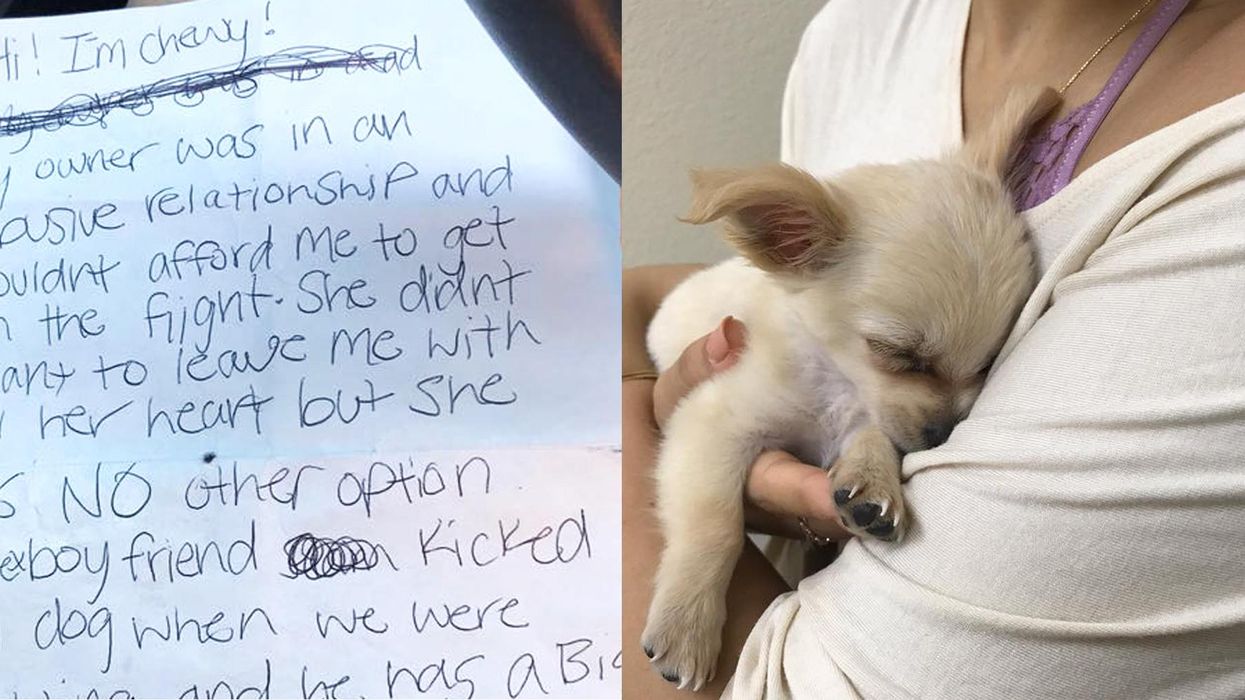 Hi! I'm chewy!
y owner was in an
busive relationship and
ouldnt afford me to get
n the flight. She didnt
ant to leave me with
l her heart but she
s NO other option
exboyfriend kicked
dog when we were
and he has a Big